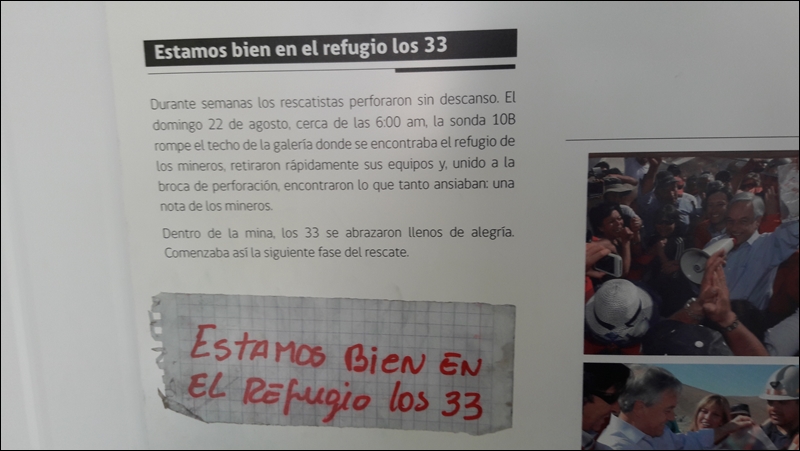 Estamos bien en el refugio los 33
Durante semanas los rescatistas perforaron sin descanso. El
domingo 22 de agosto, cerca de las 6:00 am, la sonda 10B
rompe el techo de la galería donde se encontraba el refugio de
los mineros, retiraron rápidamente sus equipos y, unido a la
broca de perforación, encontraron lo que tanto ansiaban: una
nota de los mineros.
Dentro de la mina, los 33 se abrazaron llenos de alegría.
Comenzaba así la siguiente fase del rescate.
ESTAMOS BIEN EN
EL REFUGIO los 33